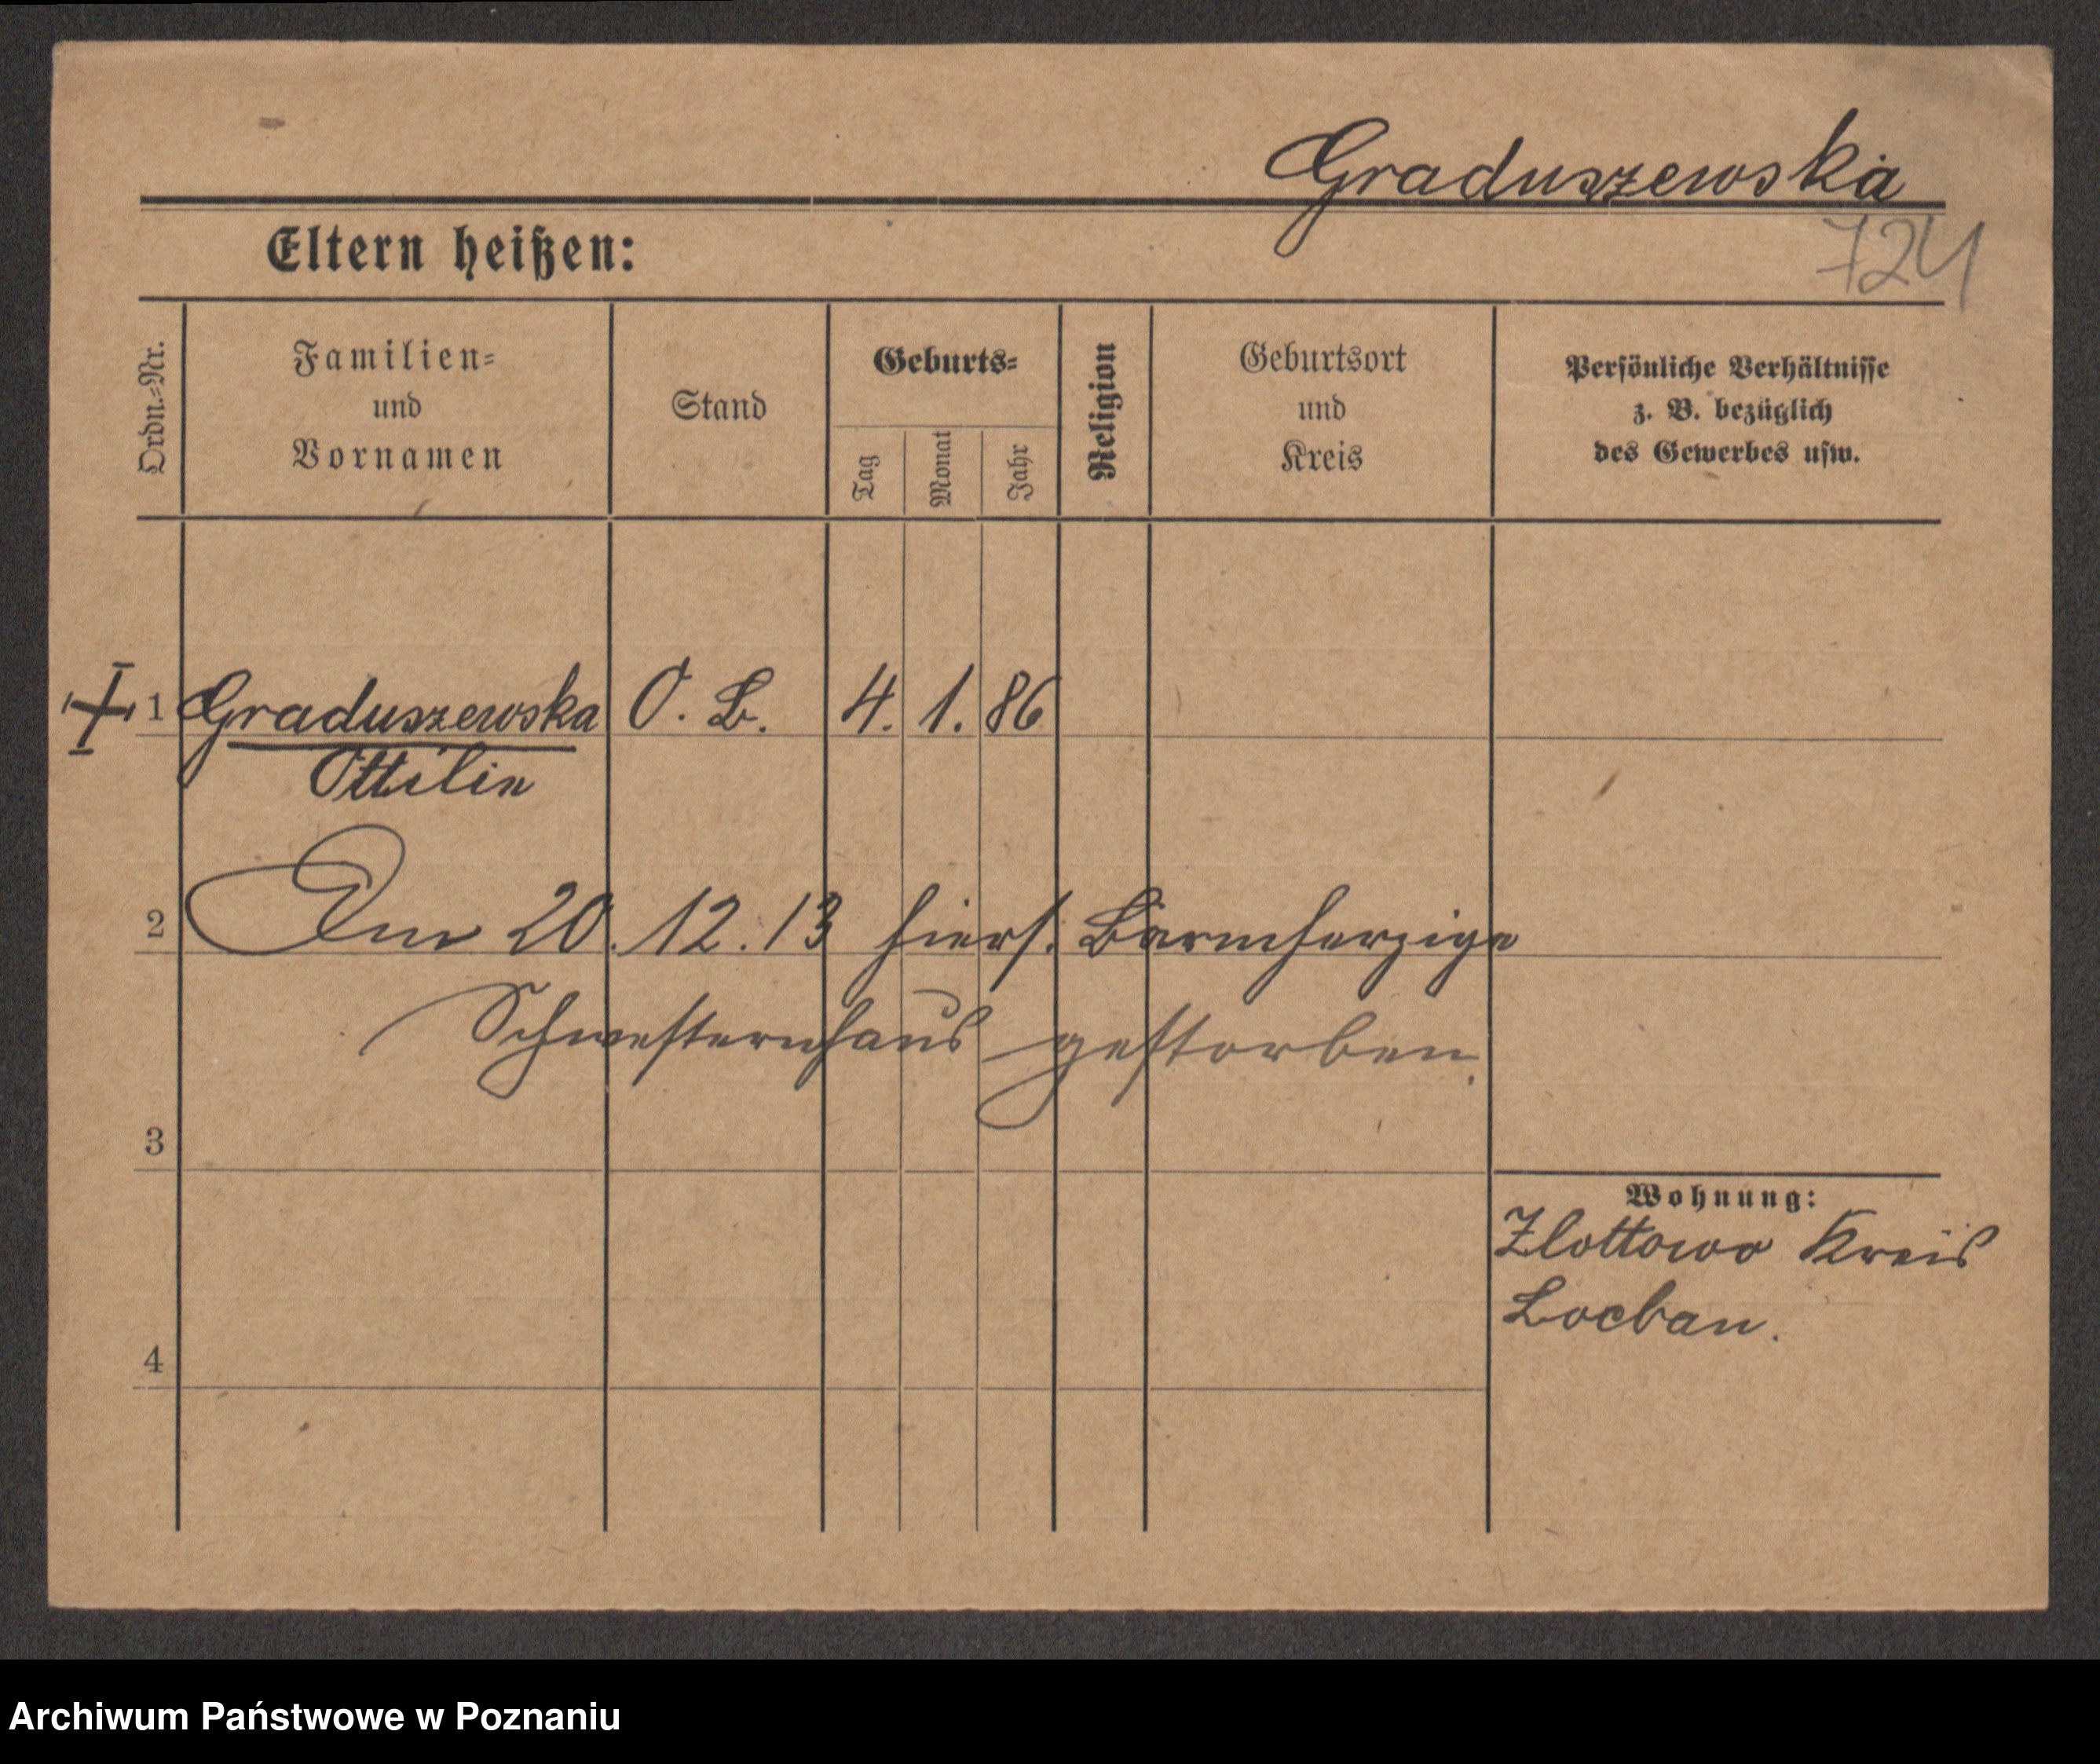 Graduszewska
724
Eltern heißen:
Ordn.-Nr.
Familien-
und
Vornamen
Stand
Geburts-
Tag
Monat
Jahr
Religion
Geburtsort
und
Kreis
Persönliche Verhältnisse
z. B. bezüglich
des Gewerbes usw.
1 Graduszewska O. B. 4. 1. 86
Ottilie
2 Am 20.12.13 hiers. Barmherzige
Schwesternhaus gestorben.
3
Wohnung:
Zlottowo Kreis
Loebau.
4
Archiwum Państwowe w Poznaniu